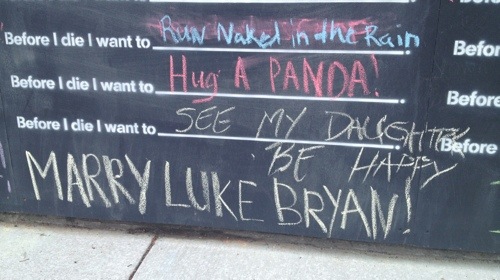 Before I die I want to Run Naked in the Rain
Before I die I want to Hug A PANDA!
Before I die I want to SEE MY DAUGHTER
BE HAPPY
MARRY LUKE BRYAN!
Befor
Before
Before